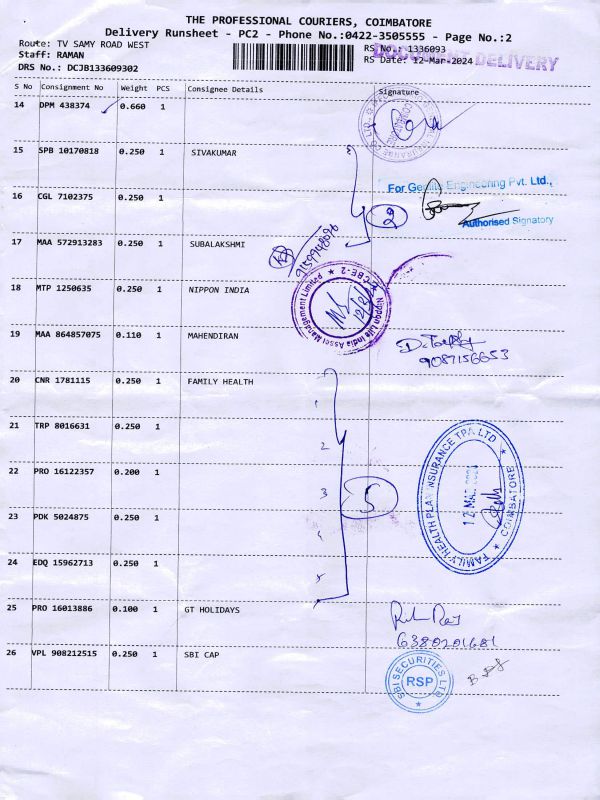 THE PROFESSIONAL COURIERS, COIMBATORE
Delivery Runsheet - PC2 - Phone No.:0422-3505555 - Page No.:2
Route: TV SAMY ROAD WEST
Staff: RAMAN
DRS No.: DCJB133609302
RS No.: 1336093
RS Date: 12-Mar-2024
DOCUMENT DELIVERY
S No Consignment No Weight PCS Consignee Details Signature
14 DPM 438374 0.660 1
15 SPB 10170818 0.250 1 SIVAKUMAR
For Engineering Pvt. Ltd.,
16 CGL 7102375 0.250 1
2
Authorised Signatory
17 MAA 572913283 0.250 1 SUBALAKSHMI
18 MTP 1250635 0.250 1 NIPPON INDIA
Nippon Life India Asset Management Limited ★ CBE-2 ★
19 MAA 864857075 0.110 1 MAHENDIRAN
9087156653
20 CNR 1781115 0.250 1 FAMILY HEALTH
1
21 TRP 8016631 0.250 1
2
22 PRO 16122357 0.200 1
3
5
FAMILY HEALTH PLAN INSURANCE TPA LTD
★ COIMBATORE ★
23 PDK 5024875 0.250 1
4
24 EDQ 15962713 0.250 1
5
25 PRO 16013886 0.100 1 GT HOLIDAYS
6380201681
26 VPL 908212515 0.250 1 SBI CAP
SBI SECURITIES LTD
RSP